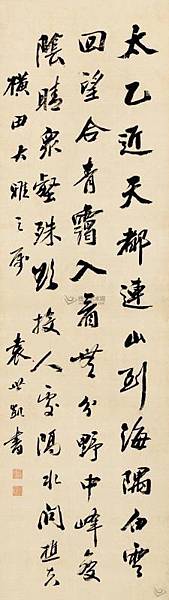 太乙近天都連山到海隅白雲
回望合青靄入看無分野中峰變
陰晴衆壑殊欲投人處隔水問樵夫
橫田大雅之屬 袁世凱書